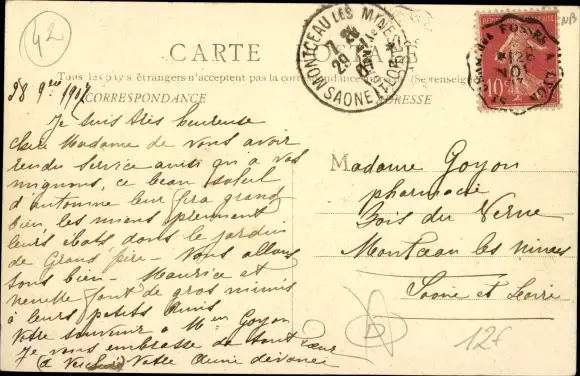 42
CARTE
Tous les pays étrangers n'acceptent pas la correspondance (Se renseigner
CORRESPONDANCE
ADRESSE
MONTCEAU LES MINES
SAONE ET LOIRE
10
28 9bre 1907
Je suis très heureuse
chère Madame de vous avoir
rendu service ainsi qu'à vos
mignons, ce beau soleil
d'automne leur fera grand
bien, les miens prennent
leurs ébats dans le jardin
de Grand père - Vous allons
tous bien - Maurice et
font de gros mimis
à leurs petits amis
Votre souvenir à Mr Goyon
Je vous embrasse de tout cœur
Votre Amie dévouée
Madame Goyon
pharmacie
Bois du Verne
Montceau les mines
Saone et Loire
12f